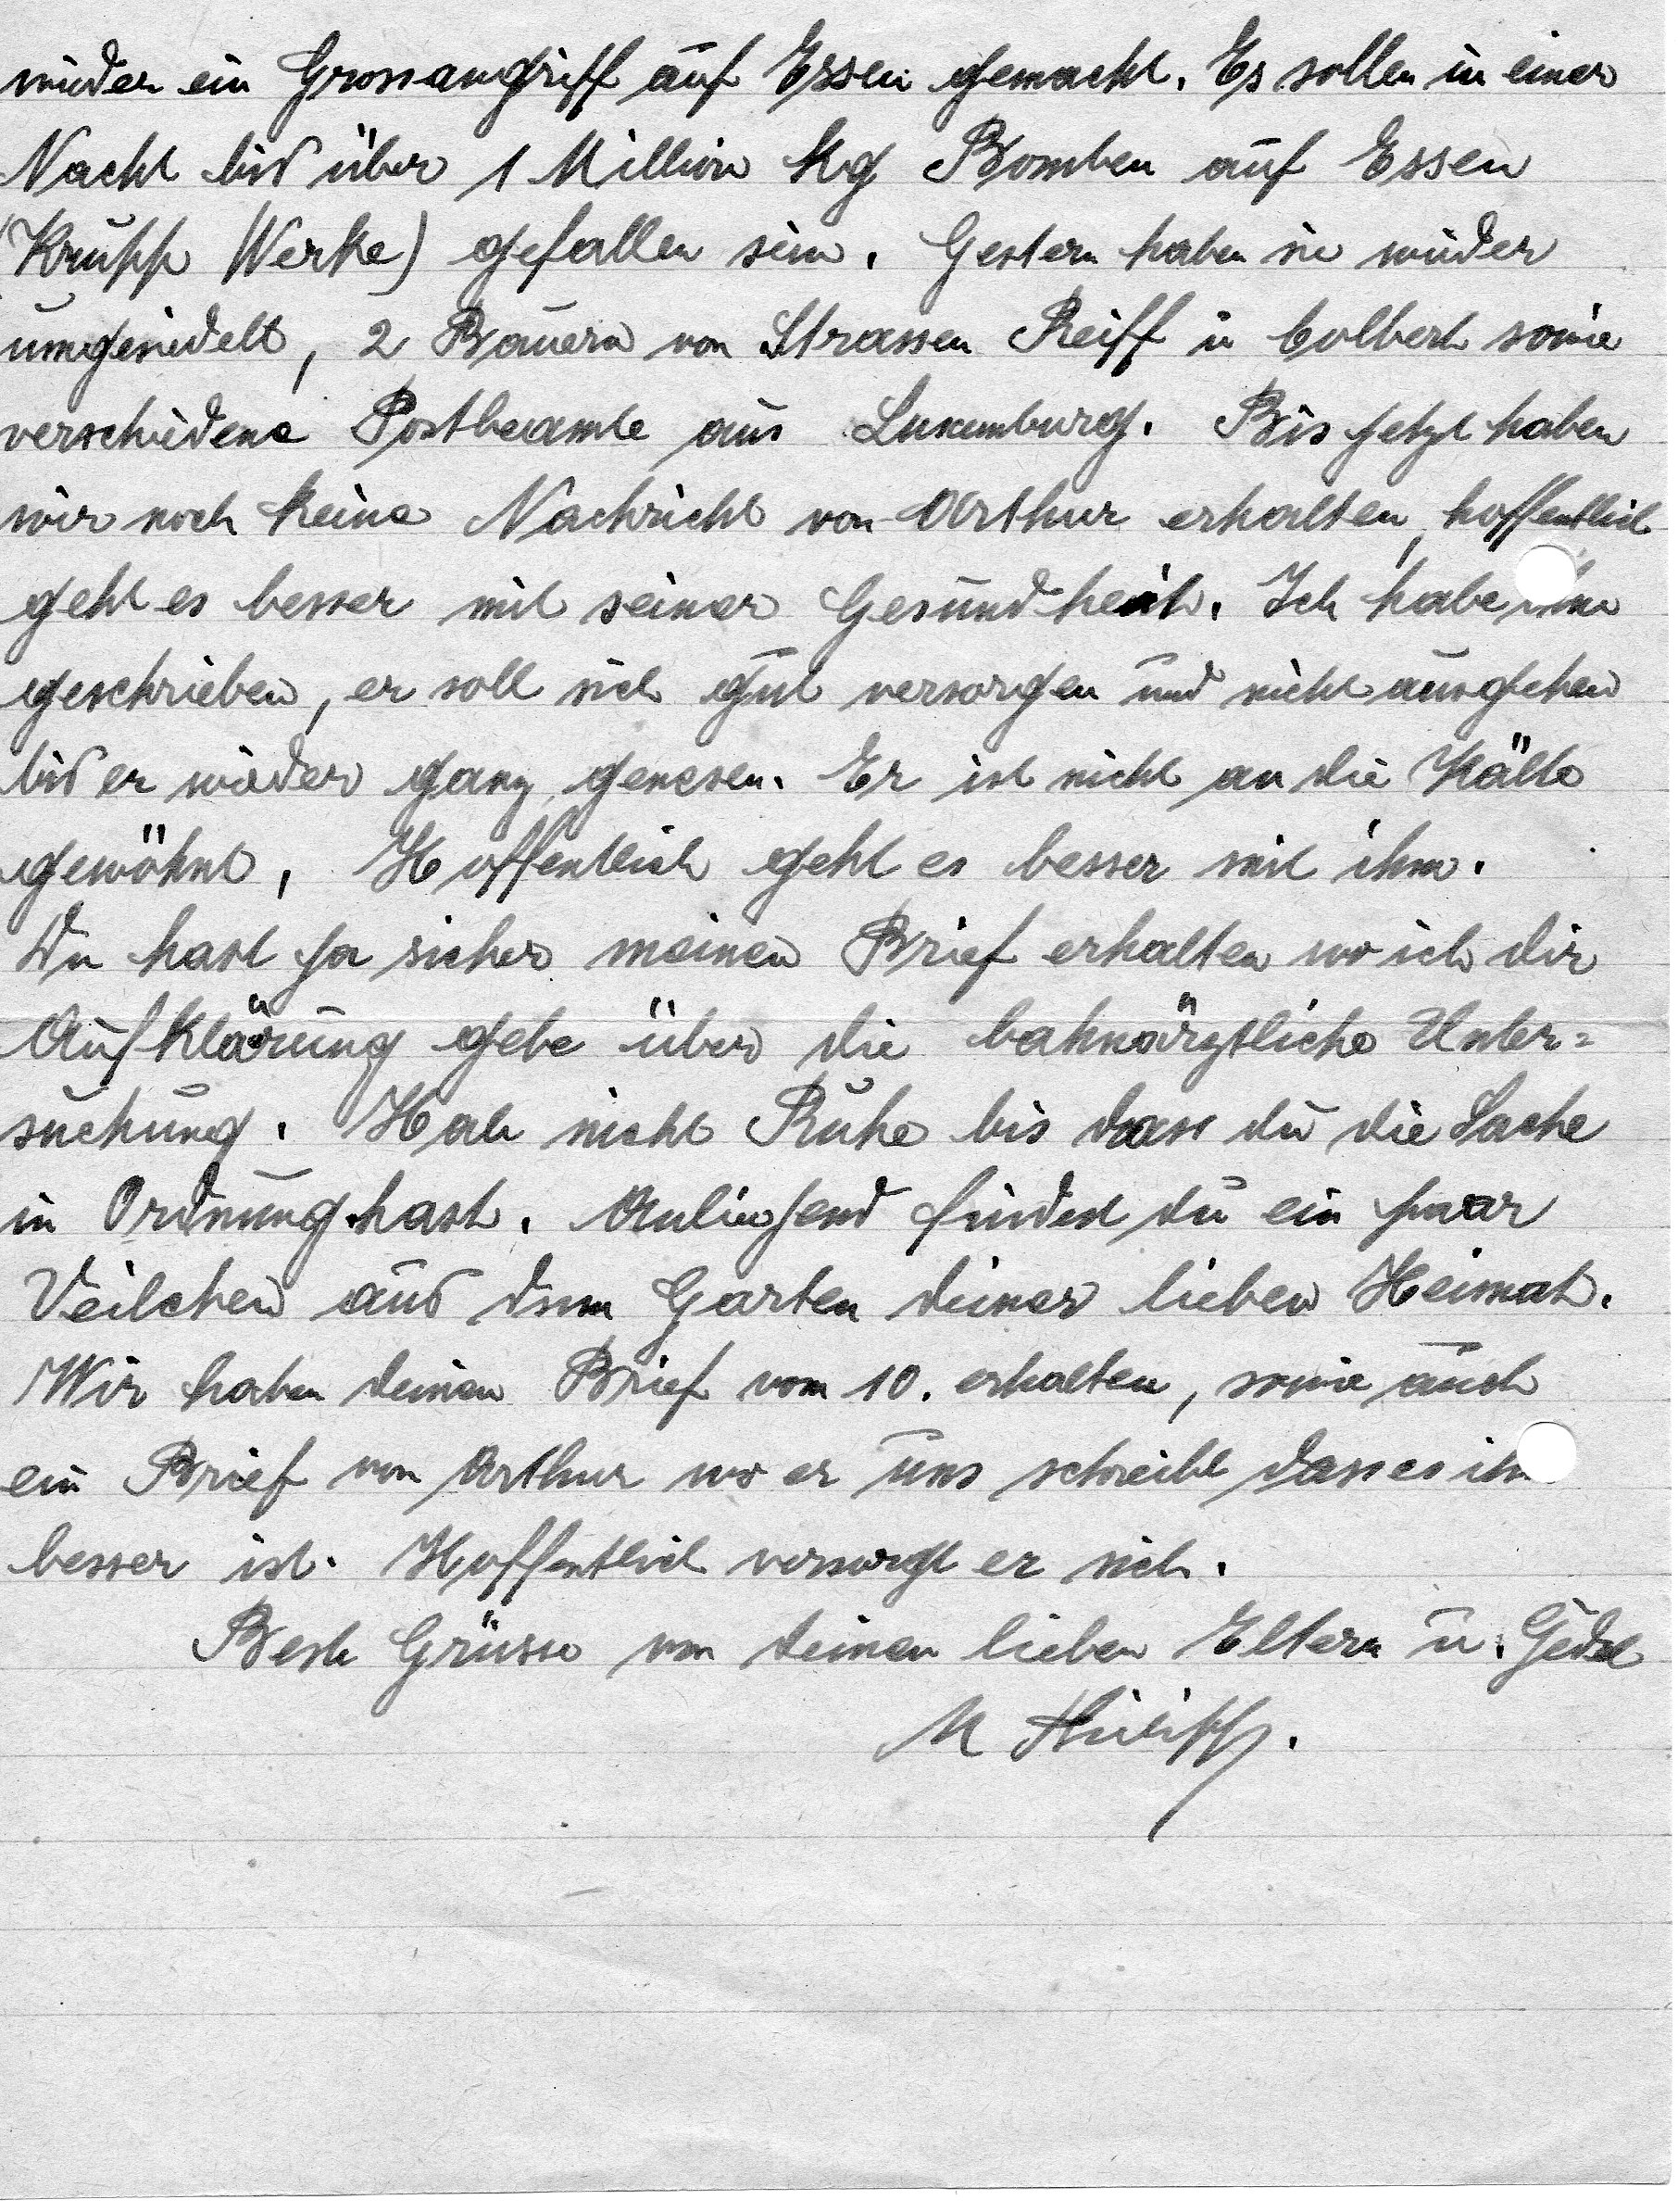 wieder ein Grossangriff auf Essen gemacht. Es sollen in einer
Nacht bis über 1 Million Kg Bomben auf Essen
(Krupp Werke) gefallen sein. Gestern haben sie wieder
umgesiedelt, 2 Bauern von Strassen Reiff u Colbach sowie
verschiedene Postbeamte aus Luxemburg. Bis jetzt haben
wir noch keine Nachricht von Arthur erhalten, hoffentlich
geht es besser mit seiner Gesundheit. Ich habe ihm
geschrieben, er soll sich gut versorgen und nicht ausgehen
bis er wieder ganz genesen. Er ist nicht an die Kälte
gewöhnt, Hoffentlich geht es besser mit ihm.
Du hast ja sicher meinen Brief erhalten wo ich dir
Aufklärung gebe über die bahnärztliche Unter=
suchung. Hab nicht Ruhe bis dass du die Sache
in Ordnung hast. Anliegend findest du ein paar
Veilchen aus dem Garten deiner lieben Heimat.
Wir haben deinen Brief vom 10. erhalten, sowie auch
ein Brief von Arthur wo er uns schreibt dass es ihm
besser ist. Hoffentlich versorgt er sich.
Beste Grüsse von deinen lieben Eltern u.
M